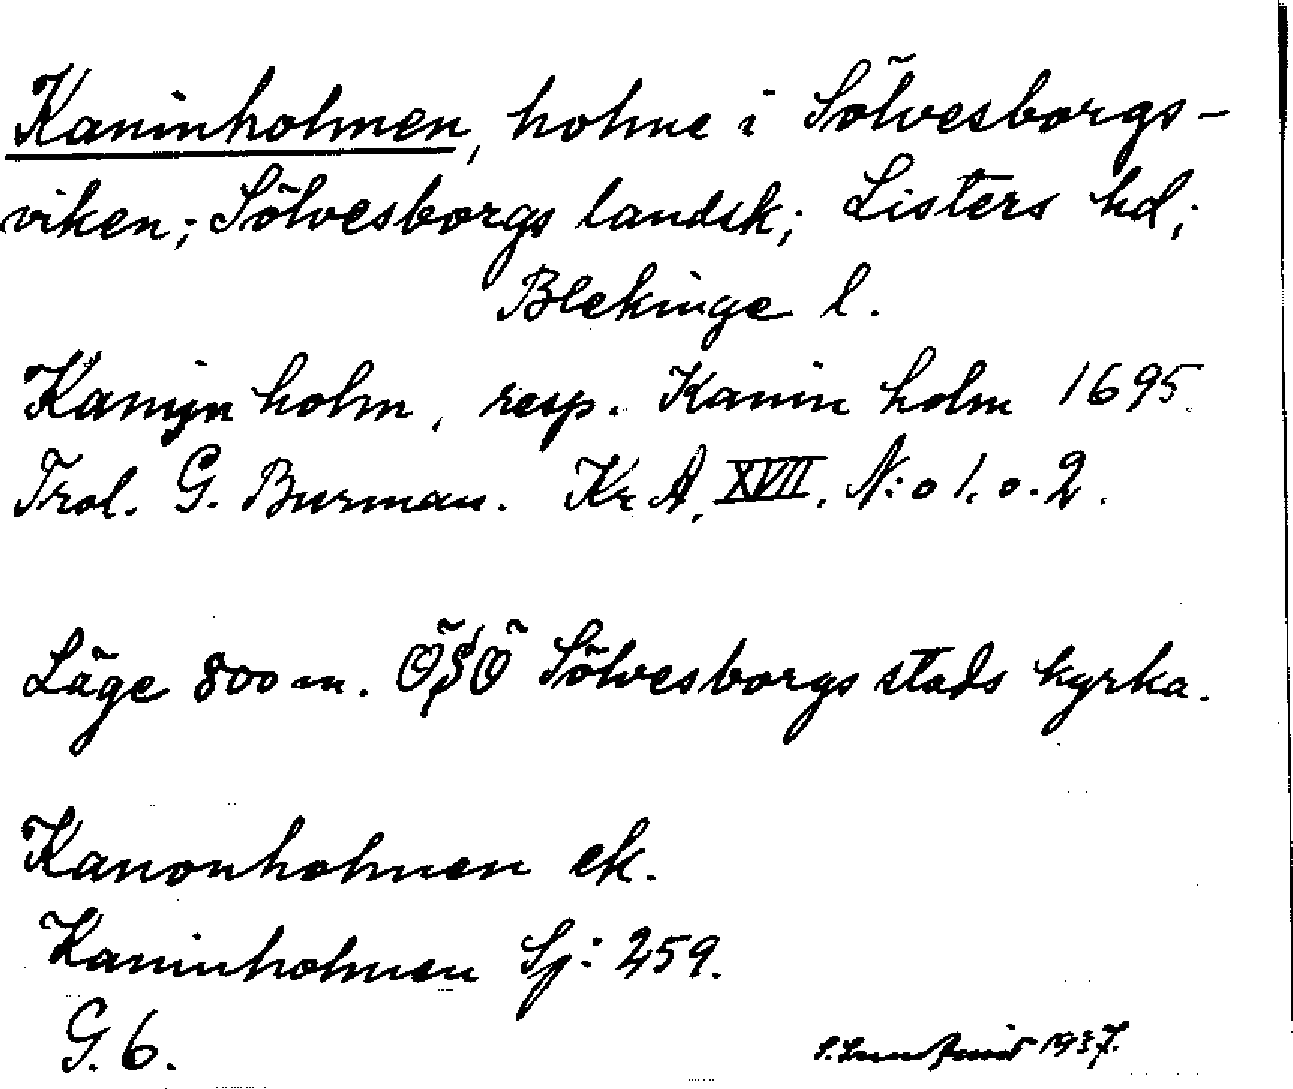 Kaninholmen, holme i Sölvesborgs-
viken; Sölvesborgs landsk; Listers hd;
Blekinge l.
Kanijn holm, resp. Kanin holm 1695
Trol. G. Burman. Kr. A. XVII. N:o 1. o. 2.
Läge 800 m. ÖSÖ Sölvesborgs stads kyrka.
Kanonholmen ek.
Kaninholmen Sj: 259.
G. 6.
1937.